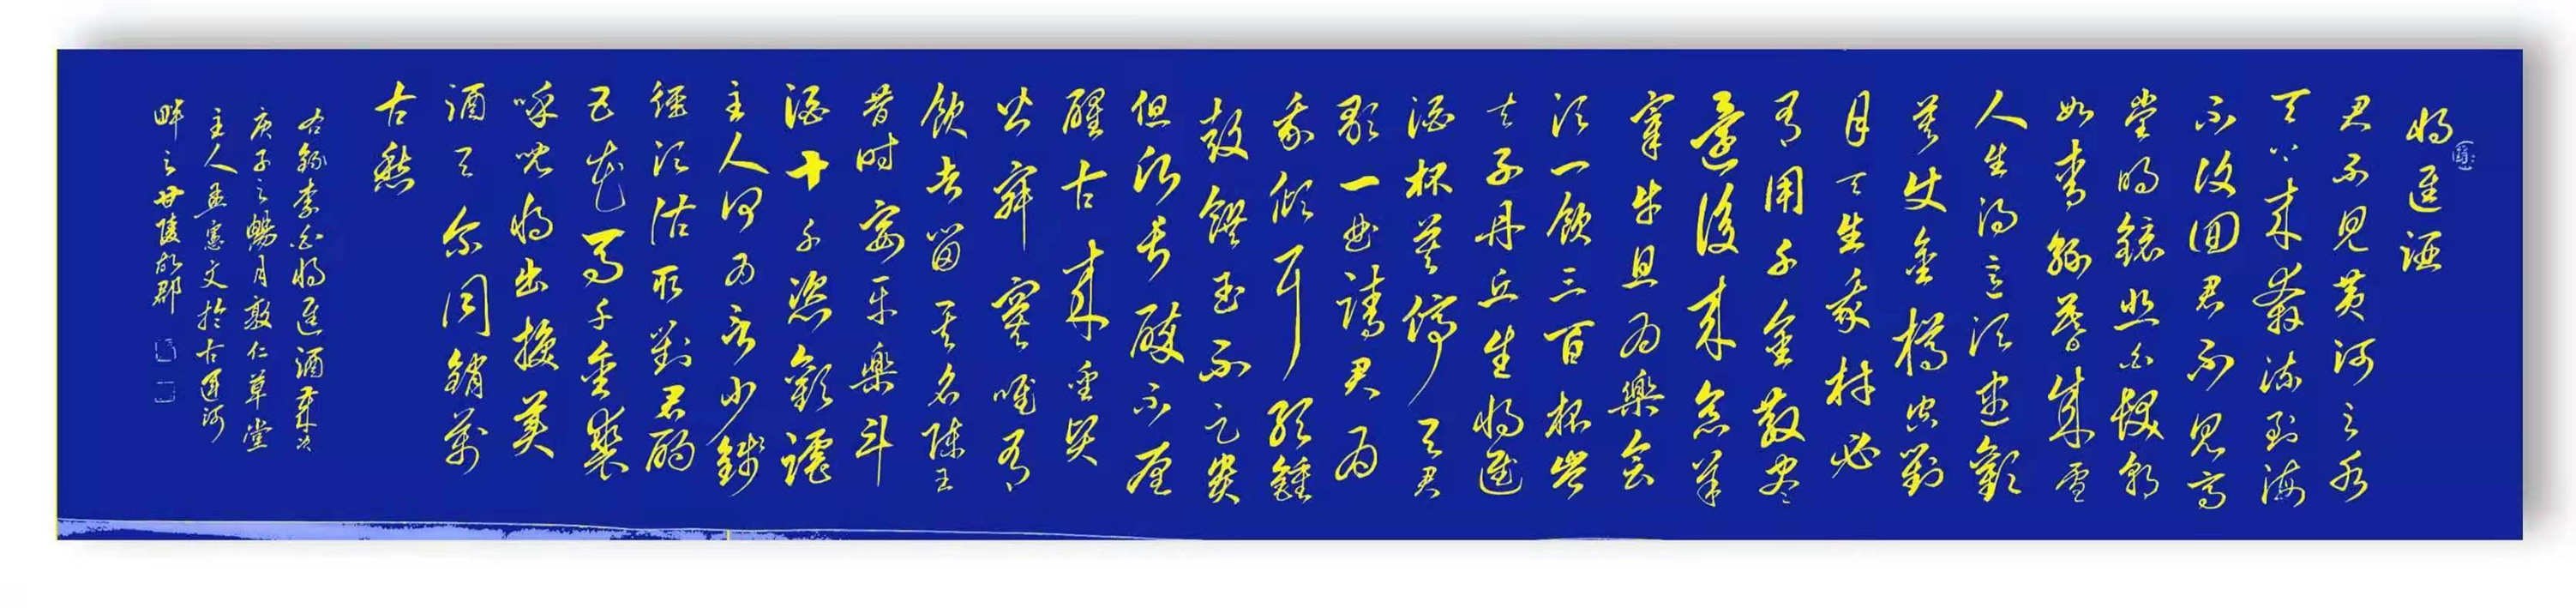 将進酒
君不見黄河之水
天上来奔流到海
不復回君不見高
堂明鏡悲白髮朝
如青絲暮成雪
人生得意須盡歡
莫使金樽空對
月天生我材必
有用千金散盡
還復来烹羊
宰牛且為樂會
須一飲三百杯岑
夫子丹丘生将進
酒杯莫停与君
歌一曲請君為
我傾耳聽鐘
鼓饌玉不足貴
但願長醉不願
醒古来聖賢
皆寂寞唯有
飲者留其名陳王
昔時宴平樂斗
酒十千恣歡謔
主人何為言少錢
徑須沽取對君酌
五花馬千金裘
呼兒将出換美
酒与尔同銷萬
古愁
右録李白将進酒歲次
庚子之暢月敦仁草堂
主人孟憲文於古運河
畔之甘陵故郡